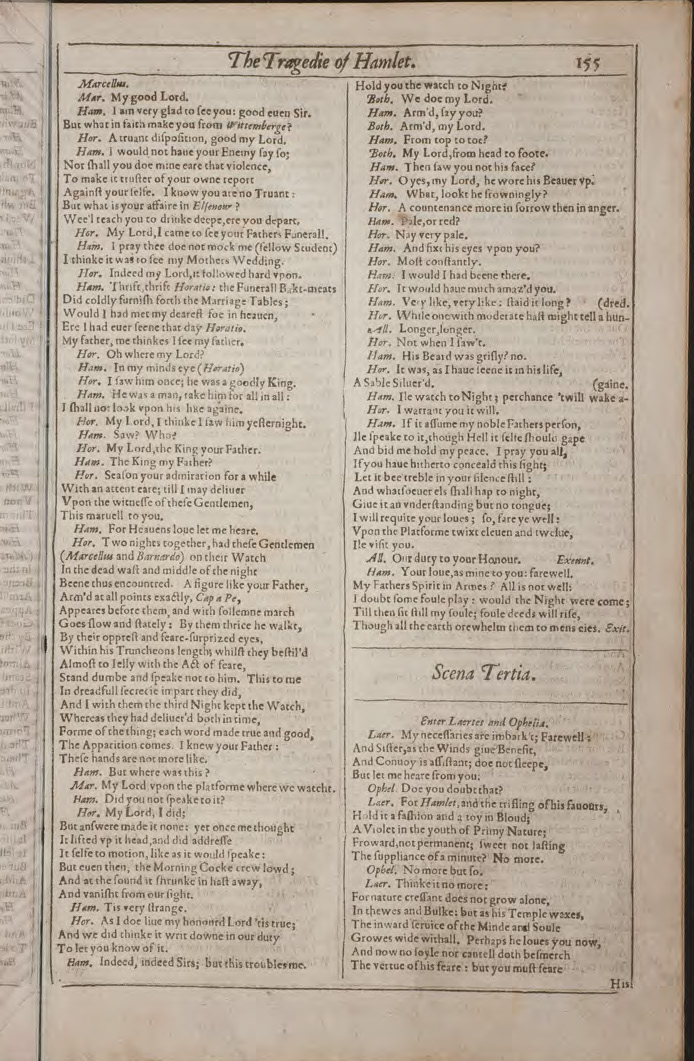 The Tragedie of Hamlet. 155
Marcellus.
Mar. My good Lord.
Ham. I am very glad to see you: good euen Sir.
But what in faith make you from Wittemberge?
Hor. A truant disposition, good my Lord.
Ham. I would not haue your Enemy say so;
Nor shall you doe mine eare that violence,
To make it truster of your owne report
Against your selfe. I know you are no Truant:
But what is your affaire in Elsenour?
Wee'l teach you to drinke deepe, ere you depart.
Hor. My Lord, I came to see your Fathers Funerall.
Ham. I pray thee doe not mock me (fellow Student)
I thinke it was to see my Mothers Wedding.
Hor. Indeed my Lord, it followed hard vpon.
Ham. Thrift, thrift Horatio: the Funerall Bakt-meats
Did coldly furnish forth the Marriage Tables;
Would I had met my dearest foe in heauen,
Ere I had euer seene that day Horatio.
My father, me thinkes I see my father.
Hor. Oh where my Lord?
Ham. In my minds eye (Horatio)
Hor. I saw him once; he was a goodly King.
Ham. He was a man, take him for all in all:
I shall not look vpon his like againe.
Hor. My Lord, I thinke I saw him yesternight.
Ham. Saw? Who?
Hor. My Lord, the King your Father.
Ham. The King my Father?
Hor. Season your admiration for a while
With an attent eare; till I may deliuer
Vpon the witnesse of these Gentlemen,
This maruell to you.
Ham. For Heauens loue let me heare.
Hor. Two nights together, had these Gentlemen
(Marcellus and Barnardo) on their Watch
In the dead wast and middle of the night
Beene thus encountred. A figure like your Father,
Arm'd at all points exactly, Cap a Pe,
Appeares before them, and with sollemne march
Goes slow and stately: By them thrice he walkt,
By their opprest and feare-surprized eyes,
Within his Truncheons length; whilst they bestil'd
Almost to Ielly with the Act of feare,
Stand dumbe and speake not to him. This to me
In dreadfull secrecie impart they did,
And I with them the third Night kept the Watch,
Whereas they had deliuer'd both in time,
Forme of the thing; each word made true and good,
The Apparition comes. I knew your Father:
These hands are not more like.
Ham. But where was this?
Mar. My Lord vpon the platforme where we watcht.
Ham. Did you not speake to it?
Hor. My Lord, I did;
But answere made it none: yet once me thought
It lifted vp it head, and did addresse
It selfe to motion, like as it would speake:
But euen then, the Morning Cocke crew lowd;
And at the sound it shrunke in hast away,
And vanisht from our sight.
Ham. Tis very strange.
Hor. As I doe liue my honourd Lord 'tis true;
And we did thinke it writ downe in our duty
To let you know of it.
Ham. Indeed, indeed Sirs; but this troubles me.
Hold you the watch to Night?
Both. We doe my Lord.
Ham. Arm'd, say you?
Both. Arm'd, my Lord.
Ham. From top to toe?
Both. My Lord, from head to foote.
Ham. Then saw you not his face?
Hor. O yes, my Lord, he wore his Beauer vp.
Ham. What, lookt he frowningly?
Hor. A countenance more in sorrow then in anger.
Ham. Pale, or red?
Hor. Nay very pale.
Ham. And fixt his eyes vpon you?
Hor. Most constantly.
Ham. I would I had beene there.
Hor. It would haue much amaz'd you.
Ham. Very like, very like: staid it long? (dred.
Hor. While one with moderate hast might tell a hun-
All. Longer, longer.
Hor. Not when I saw't.
Ham. His Beard was grisly? no.
Hor. It was, as I haue seene it in his life,
A Sable Siluer'd. (gaine.
Ham. Ile watch to Night; perchance 'twill wake a-
Hor. I warrant you it will.
Ham. If it assume my noble Fathers person,
Ile speake to it, though Hell it selfe should gape
And bid me hold my peace. I pray you all,
If you haue hitherto conceald this sight;
Let it bee treble in your silence still:
And whatsoeuer els shall hap to night,
Giue it an vnderstanding but no tongue;
I will requite your loues; so, fare ye well:
Vpon the Platforme twixt eleuen and twelue,
Ile visit you.
All. Our duty to your Honour. Exeunt.
Ham. Your loue, as mine to you: farewell.
My Fathers Spirit in Armes? All is not well:
I doubt some foule play: would the Night were come;
Till then sit still my soule; foule deeds will rise,
Though all the earth orewhelm them to mens eies. Exit.
Scena Tertia.
Enter Laertes and Ophelia.
Laer. My necessaries are imbark't; Farewell:
And Sister, as the Winds giue Benefit,
And Conuoy is assistant; doe not sleepe,
But let me heare from you.
Ophel. Doe you doubt that?
Laer. For Hamlet, and the trifling of his fauours,
Hold it a fashion and a toy in Bloud;
A Violet in the youth of Primy Nature;
Froward, not permanent; sweet not lasting
The suppliance of a minute? No more.
Ophel. No more but so.
Laer. Thinke it no more:
For nature cressant does not grow alone,
In thewes and Bulke: but as his Temple waxes,
The inward seruice of the Minde and Soule
Growes wide withall. Perhaps he loues you now,
And now no soyle nor cautell doth besmerch
The vertue of his feare: but you must feare
His